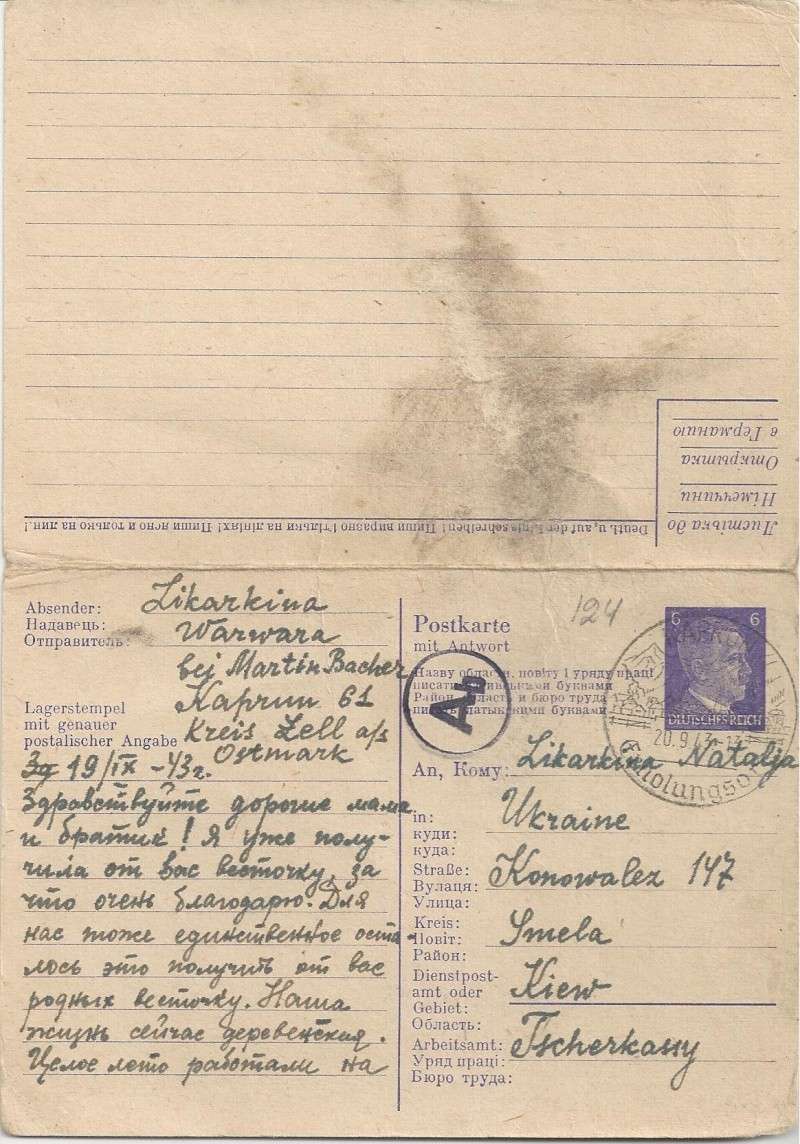 Листівка до
Німеччини
Открытка
в Германию
Deutl. u. auf der Linie schreiben! Пиши виразно і тільки на лініях! Пиши ясно и только на лин.!
Absender: Likarkina
Надавець: Warwara
Отправитель: bei Martin Bacher
Kaprun 61
Lagerstempel
mit genauer Kreis Zell a/s
postalischer Angabe Ostmark
19/IX-43г.
Здравствуйте дорогие мама
и братик! Я уже полу-
чила от вас весточку, за
что очень благодарю. Для
нас тоже единственное оста-
лось это получить от вас
родных весточку. Наша
жизнь сейчас деревенская.
Целое лето работали на
124
Postkarte
mit Antwort
Назву области, повіту і уряду праці
писати латинськими буквами
Район, область и бюро труда
писать латынскими буквами
Ab
6 6
DEUTSCHES REICH
20.9.43
An, Кому: Likarkina Natalja
in: Ukraine
куди:
куда:
Straße: Konowalez 147
Вулаця:
Улица:
Kreis: Smela
Повіт:
Район:
Dienstpost-
amt oder Kiew
Gebiet:
Область:
Arbeitsamt: Tscherkassy
Уряд праці:
Бюро труда: